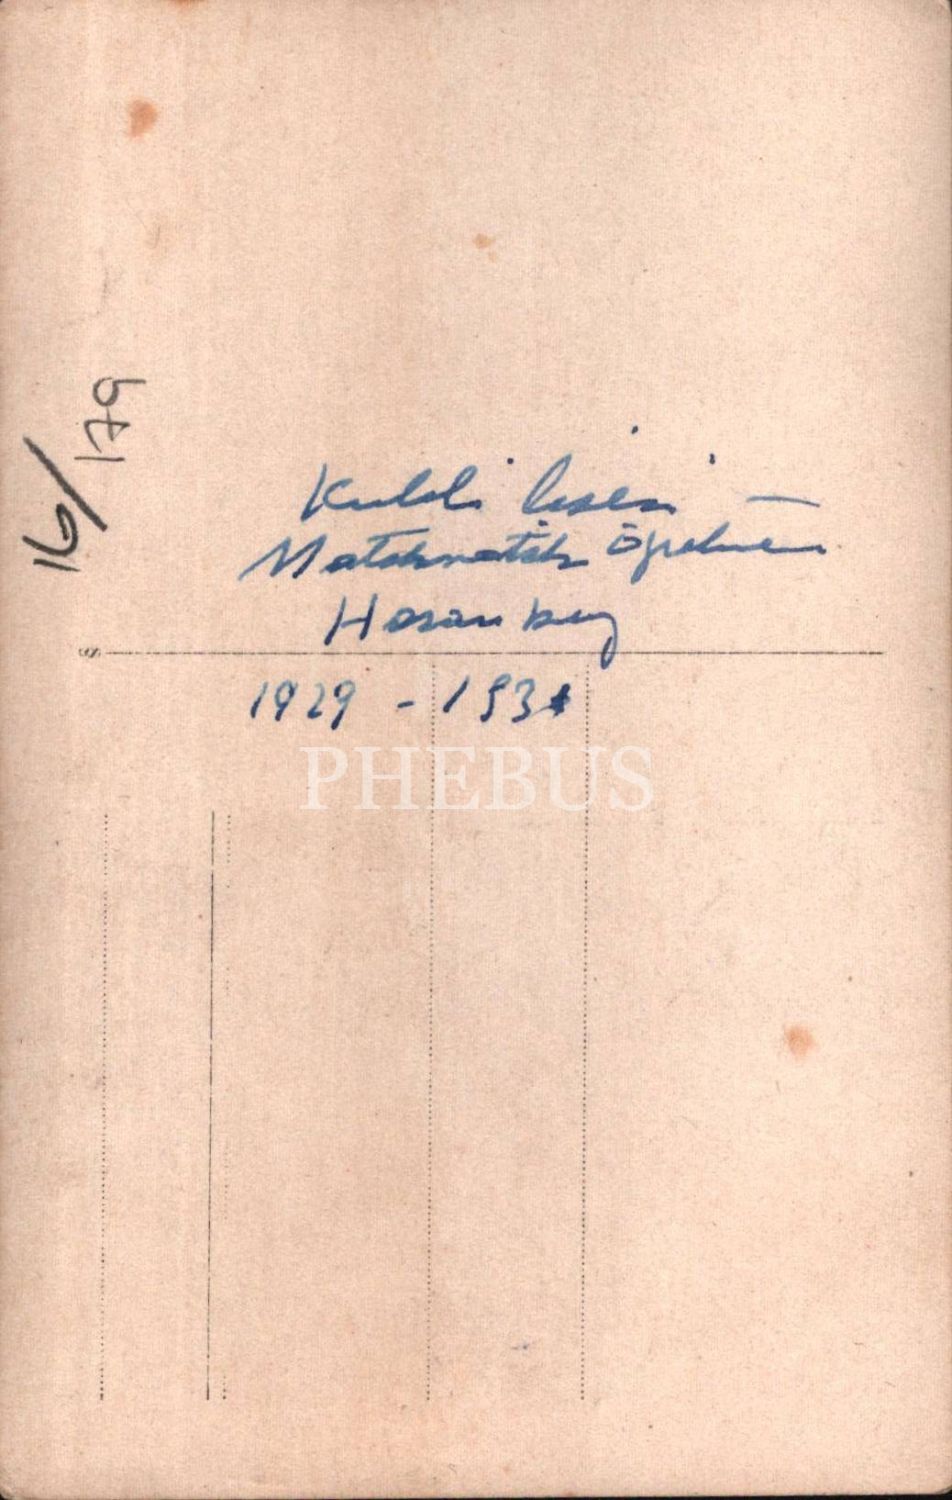 16/179
Kuleli lisesi –
Matematik öğretmeni
Hasan bey
1929 - 193
PHEBUS